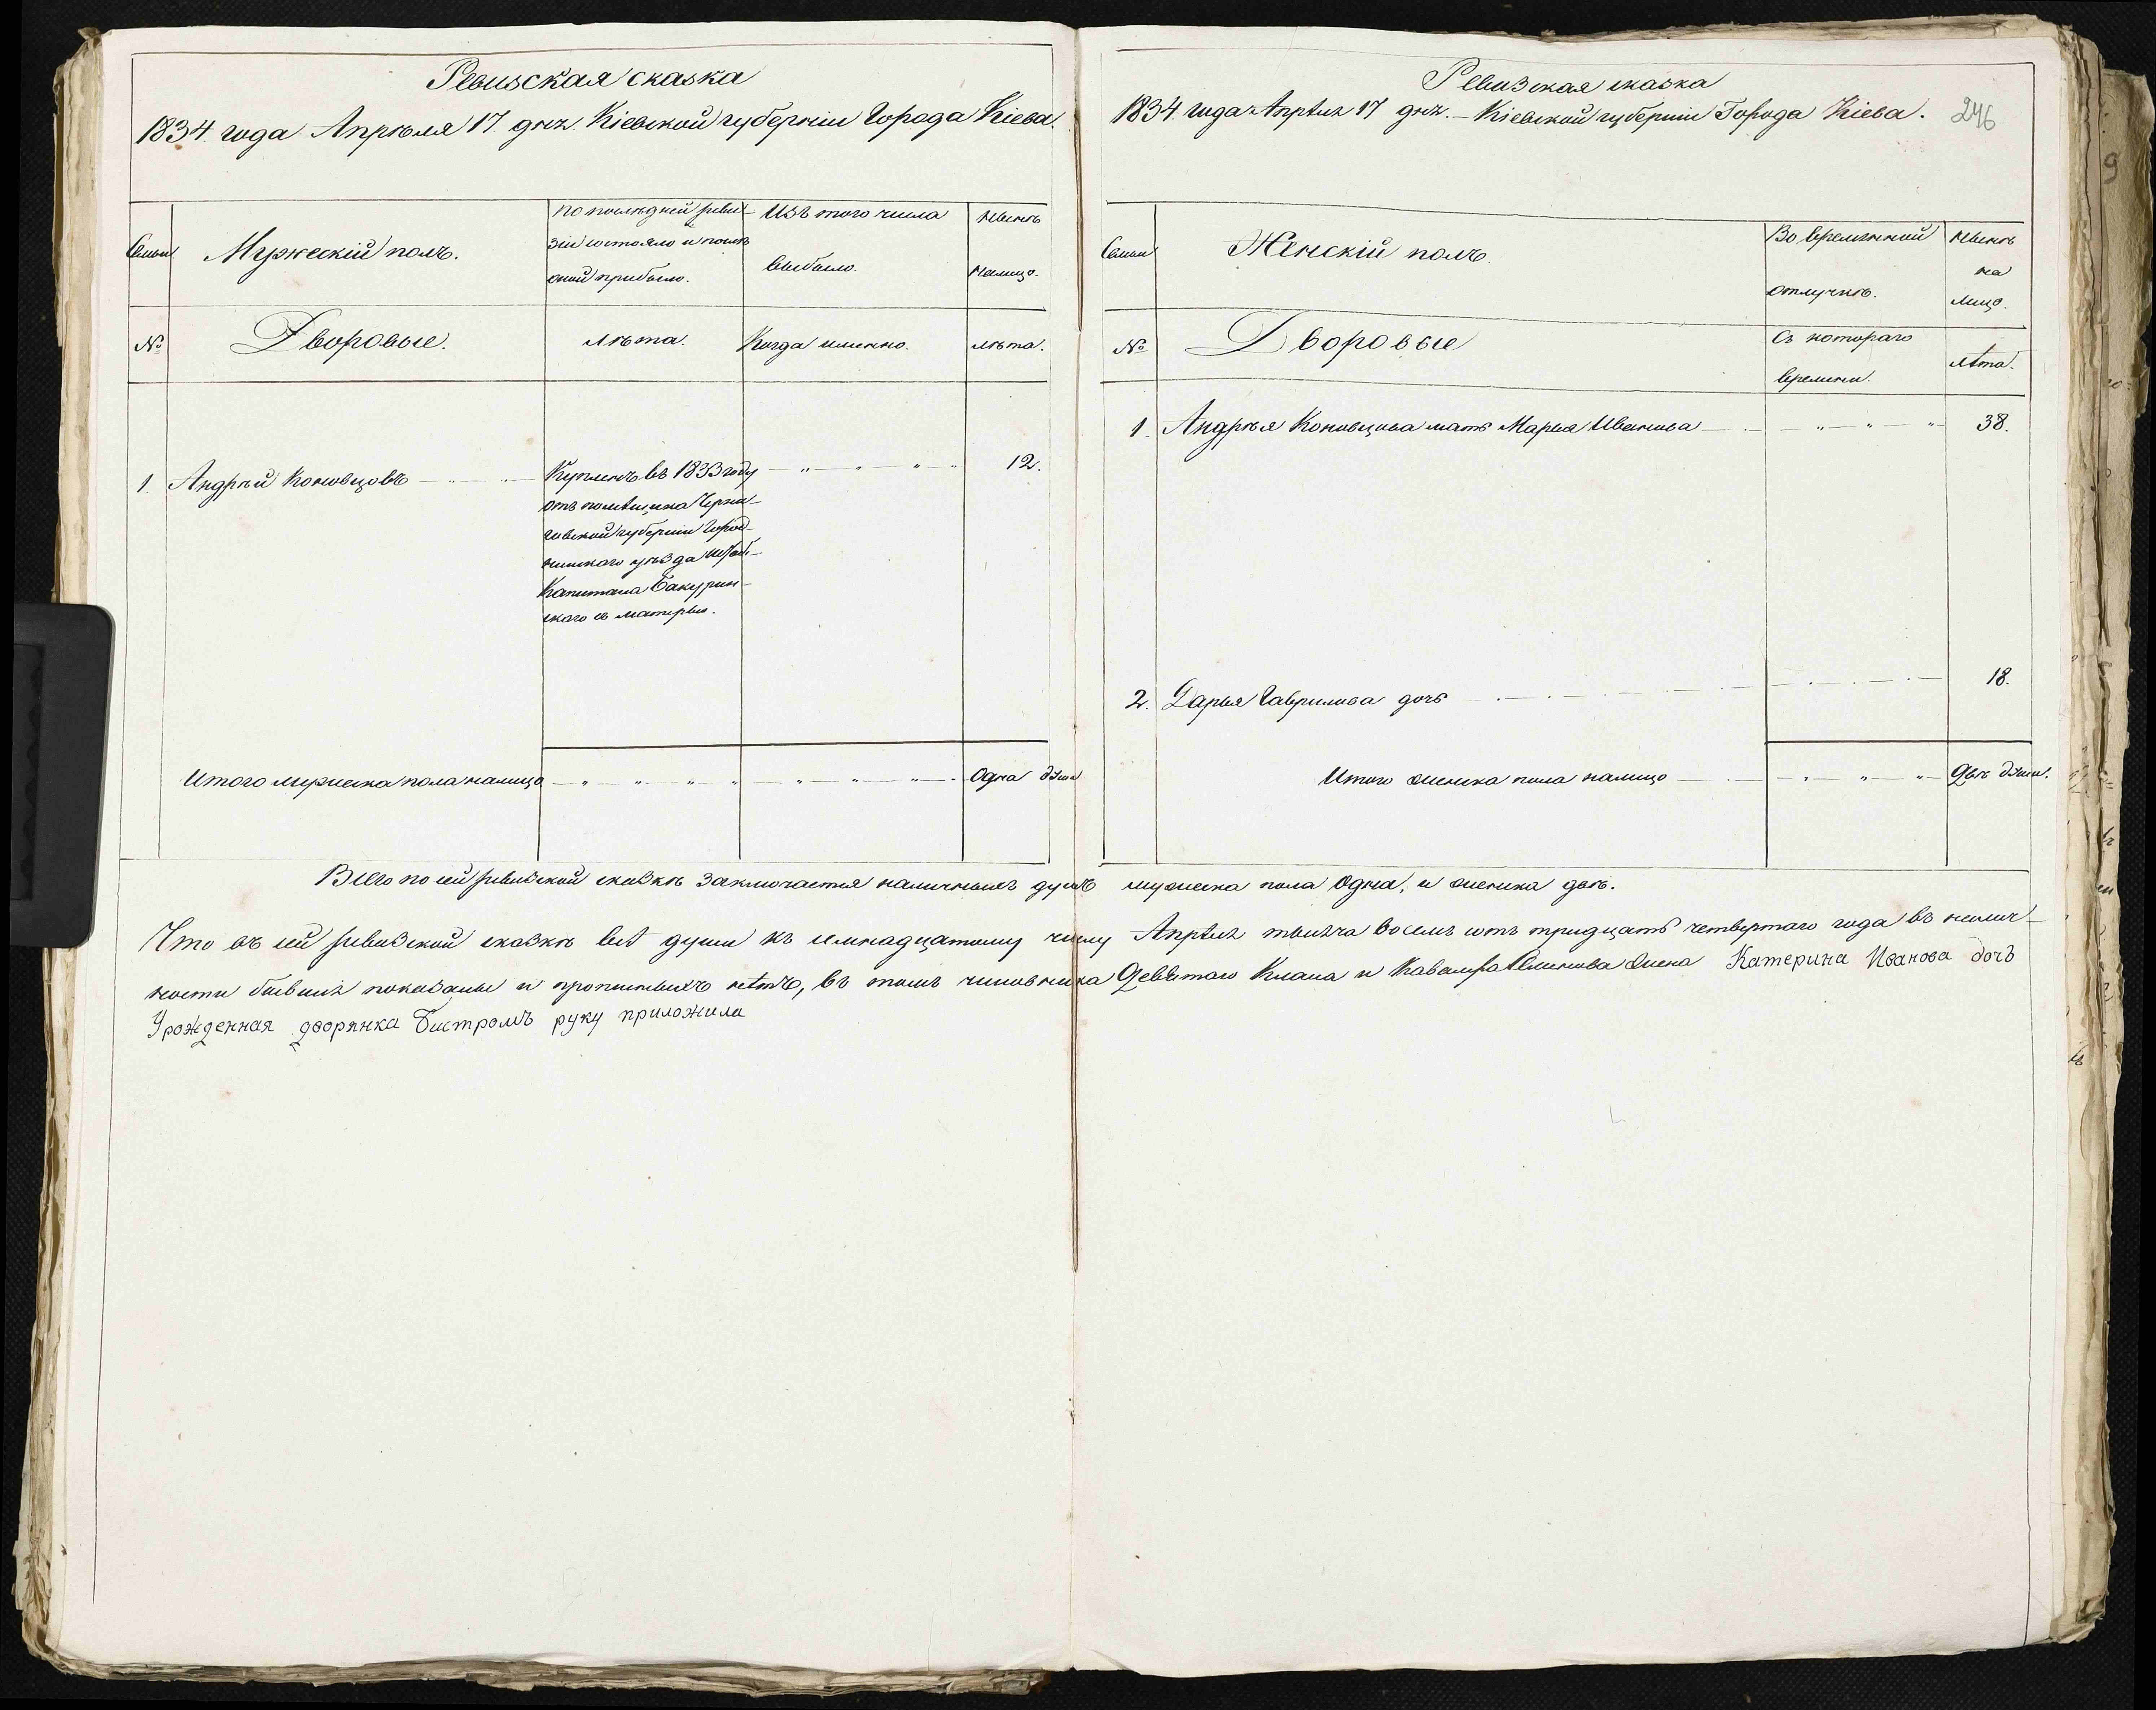 Ревизская сказка
1834 года Апрѣля 17 дня. Кіевской губерніи Города Кіева.
Семьи
Мужескій полъ.
По послѣдней реви-
зіи состояло и послѣ
оной прибыло.
Изъ того числа
выбыло.
Нынѣ
налицо.
№
Дворовые.
лѣта.
Когда именно.
лѣта.
1. Андрѣй Коновцовъ 12.
Купленъ въ 1833 году
отъ помѣщика Черни-
говской губерніи Город-
ницкаго уѣзда Штабъ-
Капитана Бакурин-
скаго съ матерью.
Итого мужеска пола налицо Одна душа
Ревизская сказка
1834 года Апрѣля 17 дня. – Кіевской губерніи Города Кіева. 246
Семьи
Женскій полъ.
Во временной
отлучкѣ.
Нынѣ
на
лицо.
№
Дворовые
Съ котораго
времени.
лѣта.
1. Андрѣя Коновцова мать Марья Иванова 38.
2. Дарья Гаврилова дочь 18.
Итого женска пола налицо Двѣ души.
Всего по сей ревизской сказкѣ заключается наличныхъ душъ мужеска пола Одна, и женска двѣ.
Что въ сей ревизской сказкѣ всѣ души къ семнадцатому числу Апрѣля тысяча восемь сотъ тридцать четвертаго года въ налич-
ности бывшія показаны и прописныхъ нѣтъ, въ томъ чиновника Девятаго Класа и Кавалера жена Катерина Иванова дочь
Урожденная дворянка Бистромъ руку приложила